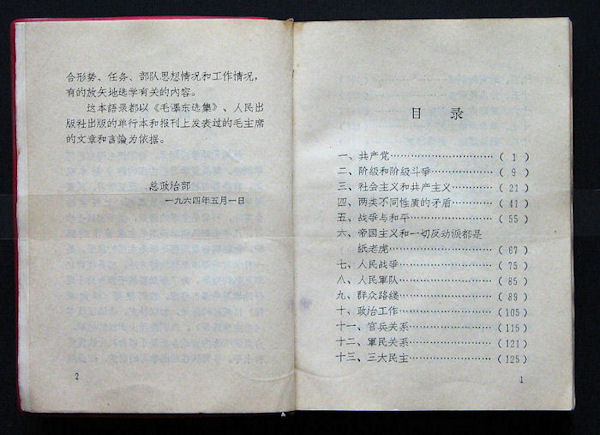 合形势、任务、部队思想情况和工作情况，
有的放矢地选学有关的内容。
这本語录都以《毛澤东选集》、人民出
版社出版的单行本和报刊上发表过的毛主席
的文章和言論为依据。
总政治部
一九六四年五月一日
2
目 录
一、共产党……………………（ 1 ）
二、阶級和阶級斗爭……………（ 9 ）
三、社会主义和共产主义………（ 21 ）
四、两类不同性质的矛盾………（ 41 ）
五、战爭与和平…………………（ 55 ）
六、帝国主义和一切反动派都是
紙老虎………………………（ 67 ）
七、人民战爭……………………（ 75 ）
八、人民軍队……………………（ 85 ）
九、群众路綫……………………（ 89 ）
十、政治工作……………………（105）
十一、官兵关系…………………（115）
十二、軍民关系…………………（121）
十三、三大民主…………………（125）
1